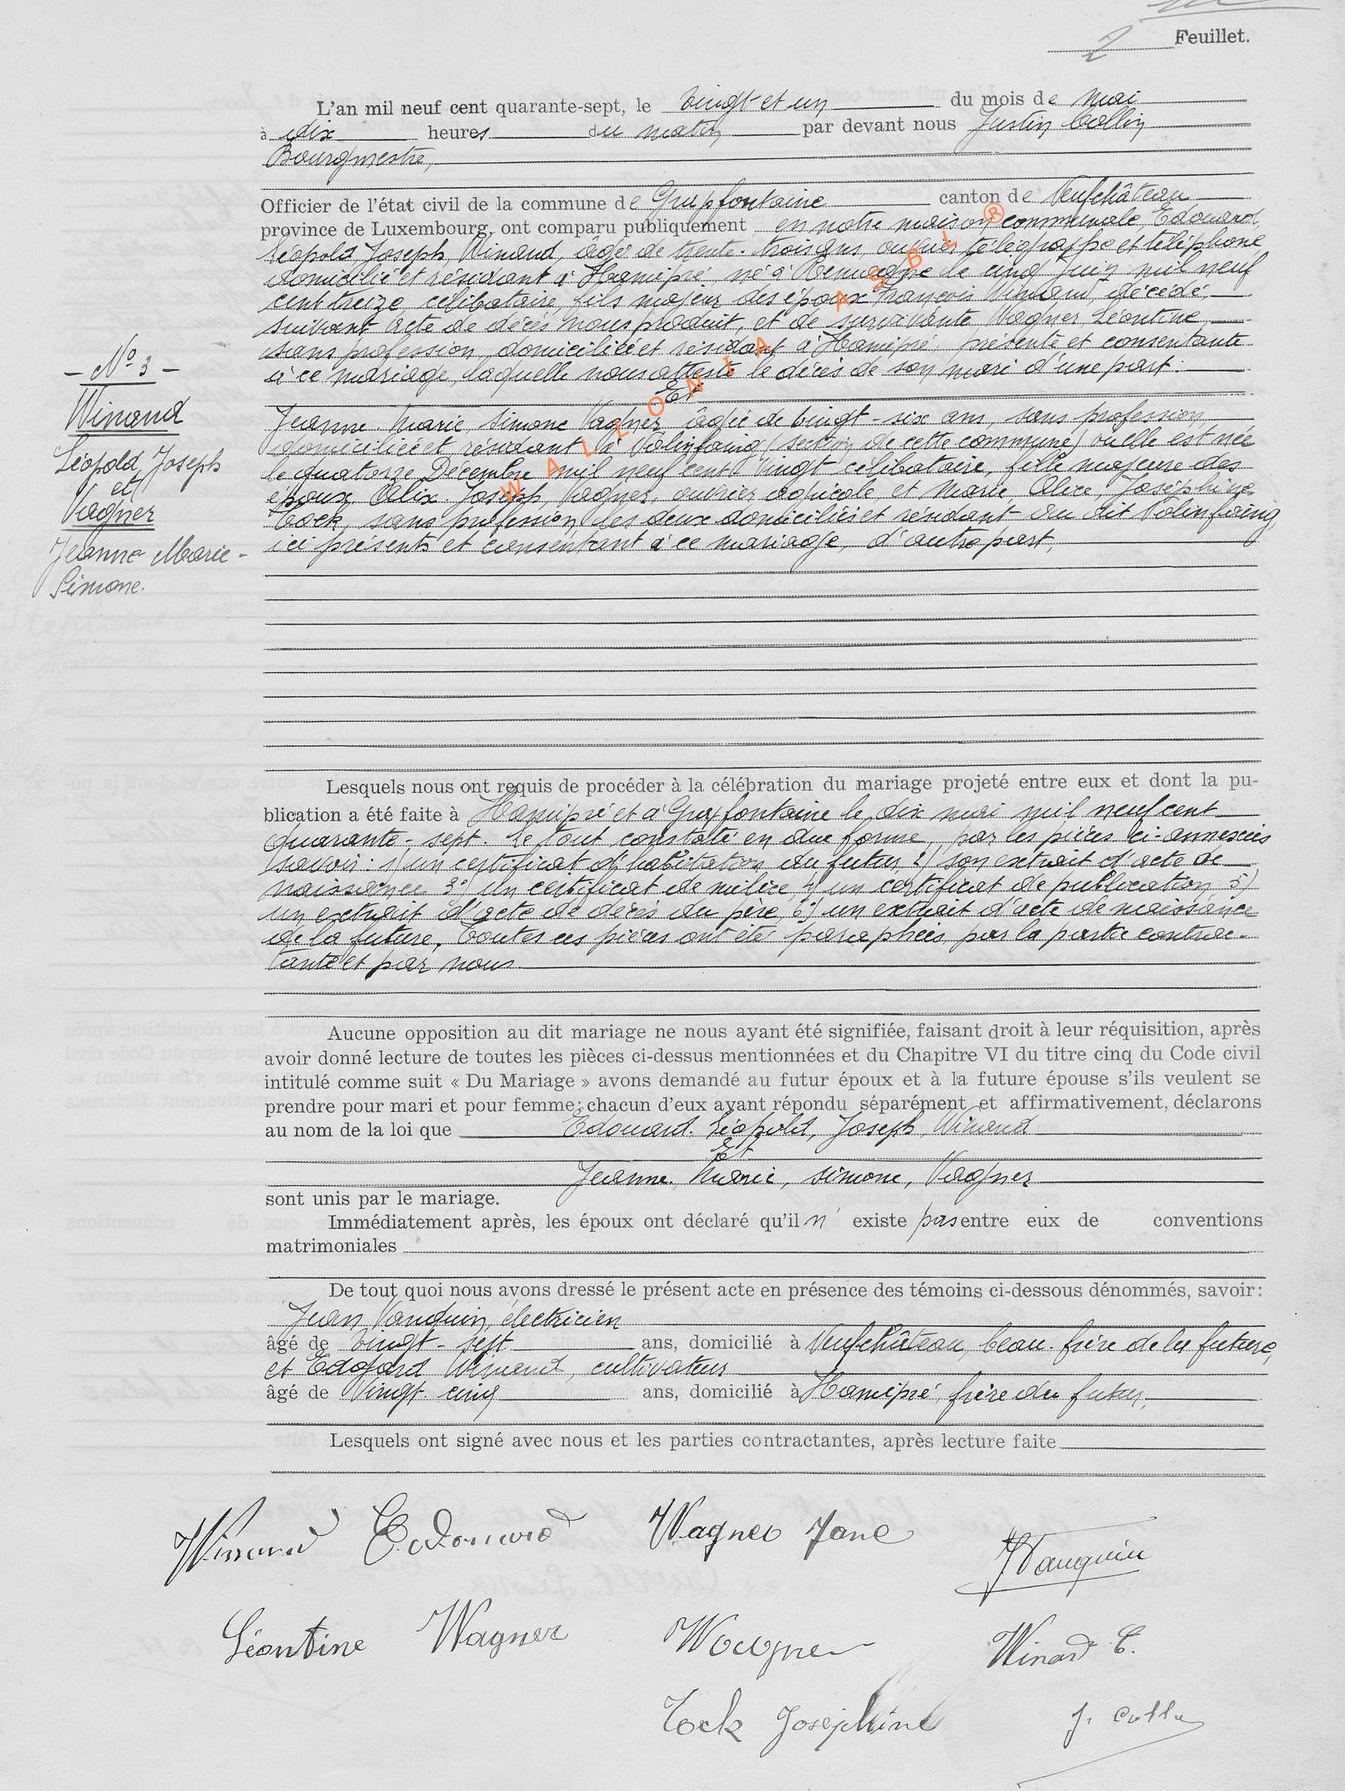 2 Feuillet.
L'an mil neuf cent quarante-sept, le vingt-et un du mois de mai
à dix heures du matin par devant nous Justin Collin
Bourgmestre,
Officier de l'état civil de la commune de Grapfontaine canton de Neufchâteau
province de Luxembourg, ont comparu publiquement en notre maison communale, Edouard,
Léopold, Joseph, Winand, agé de trente-trois ans, ouvrier télégraphe et téléphone
domicilié et résidant à Hamipré né à le cinq Juin mil neuf
cent treize, célibataire, fils majeur des époux François Winand, décédé,
suivant acte de décès nous produit, et de survivante Wagner, Léontine,
sans profession, domiciliée et résidant à Hamipré, présente et consentante
à ce mariage, laquelle nous atteste le décès de son mari d'une part.
Et
Jeanne, Marie, Simone Wagner, âgée de vingt-six ans, sans profession,
domiciliée et résidant à Nolinfaing (section de cette commune) où elle est née
le quatorze Décembre mil neuf cent vingt célibataire, fille majeure des
époux Alix Joseph Wagner, ouvrier agricole et Marie, Alice, Joséphine
Tock, sans profession, les deux domiciliés et résidant au dit Nolinfaing,
ici présents et consentant à ce mariage, d'autre part.
- No 3 -
Winand
Léopold, Joseph
et
Wagner
Jeanne Marie-
Simone.
Lesquels nous ont requis de procéder à la célébration du mariage projeté entre eux et dont la pu-
blication a été faite à Hamipré et à Grapfontaine le dix mai mil neuf cent
quarante-sept. Le tout constaté en due forme, par les pièces ci-annexées
savoir: 1) un certificat d'habitation du futur 2) son extrait d'acte de
naissance 3°) un certificat de milice, 4) un certificat de publication 5)
un extrait d'acte de décès du père, 6°) un extrait d'acte de naissance
de la future. Toutes ces pièces ont été paraphées par la partie contrac-
tante et par nous.
Aucune opposition au dit mariage ne nous ayant été signifiée, faisant droit à leur réquisition, après
avoir donné lecture de toutes les pièces ci-dessus mentionnées et du Chapitre VI du titre cinq du Code civil
intitulé comme suit « Du Mariage » avons demandé au futur époux et à la future épouse s'ils veulent se
prendre pour mari et pour femme; chacun d'eux ayant répondu séparément et affirmativement, déclarons
au nom de la loi que Edouard, Léopold, Joseph, Winand
Et
Jeanne, Marie, Simone, Wagner
sont unis par le mariage.
Immédiatement après, les époux ont déclaré qu'il n' existe pas entre eux de conventions
matrimoniales
De tout quoi nous avons dressé le présent acte en présence des témoins ci-dessous dénommés, savoir:
Jean Vauquin, électricien
âgé de vingt-sept ans, domicilié à Neufchâteau, beau-frère de la future,
et Edgard Winand, cultivateur
âgé de vingt-cinq ans, domicilié à Hamipré, frère du futur.
Lesquels ont signé avec nous et les parties contractantes, après lecture faite
Winand Edouard Wagner Jane JVauquin
Léontine Wagner Wagner Winand E.
Tock Joséphine J. Collin
WALLONIA ASBL ®